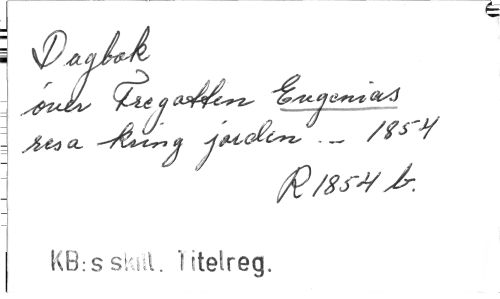 Dagbok
över Fregatten Eugenias
resa kring jorden .. – 1854
R 1854 b.
KB:s skill. Titelreg.